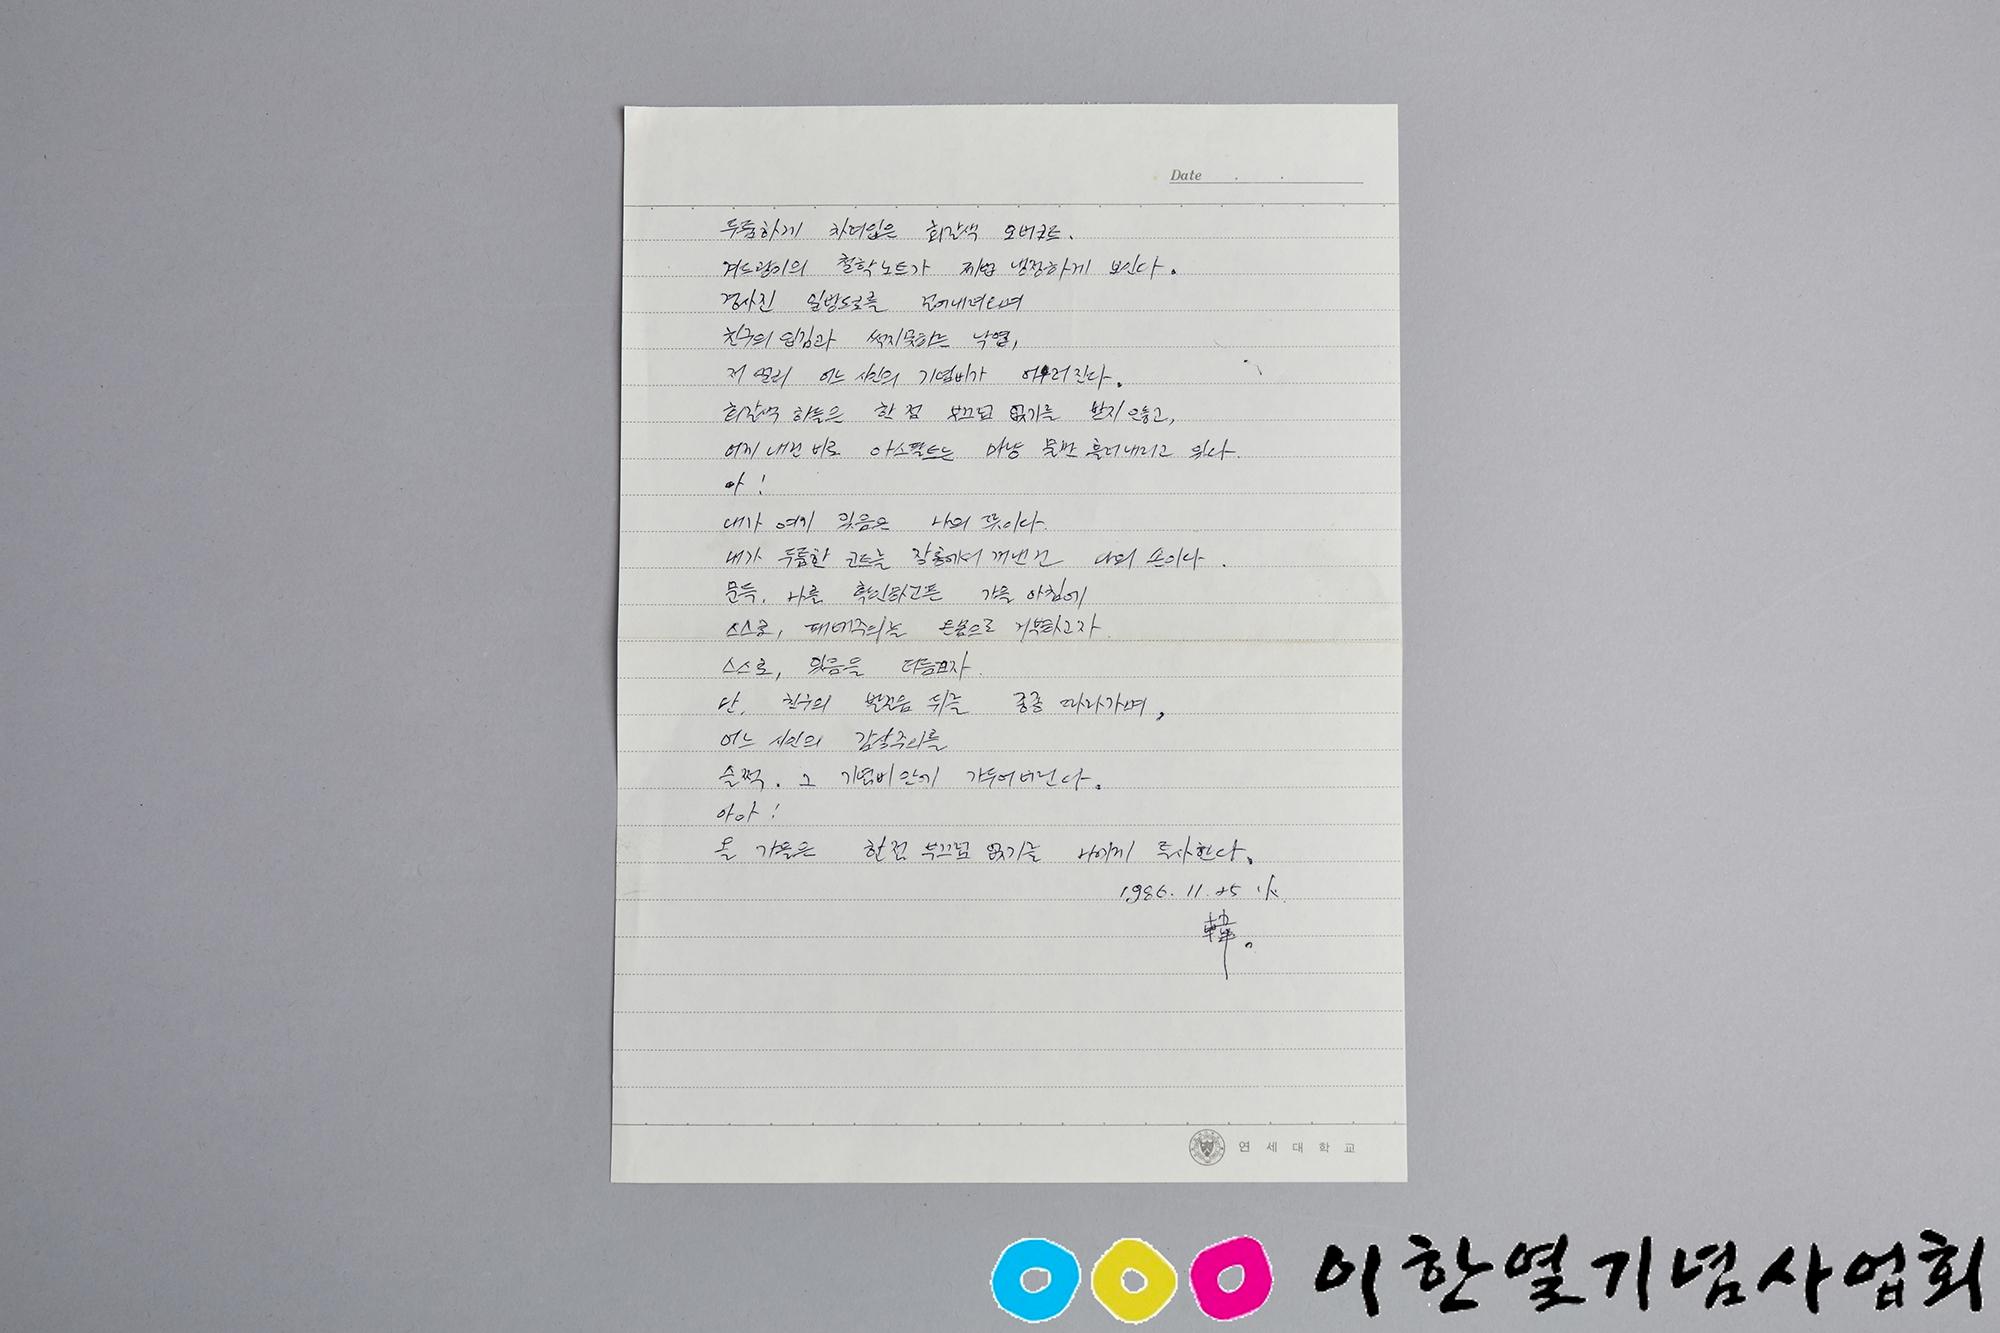 Date . .
두툼하게 차려입은 회갈색 오버코트.
겨드랑이의 철학노트가 제법 냉정하게 보인다.
경사진 일방도로를 걸어내려오며
친구의 입김과 썩지못하는 낙엽,
저 멀리 어느 시인의 기념비가 어우러진다.
회갈색 하늘은 한 점 부끄럼 없기를 받지 않고,
어제 내린 비로 아스팔트는 마냥 물만 흘러내리고 있다.
아!
내가 여기 있음은 나의 뜻이다.
내가 두툼한 코트를 장롱에서 꺼낸건 나의 손이다.
문득, 나를 확인하고픈 가을 아침에
스스로, 패배주의를 온몸으로 거부하고자
스스로, 있음을 더듬고자.
난, 친구의 발걸음 뒤를 종종 따라가며,
어느 시인의 감상주의를
슬쩍. 그 기념비 안에 가두어버린다.
아아!
올 가을은 한점 부끄럼 없기를 나에게 투사한다.
1986. 11. 25 火.
韓.
연세대학교
이한열기념사업회